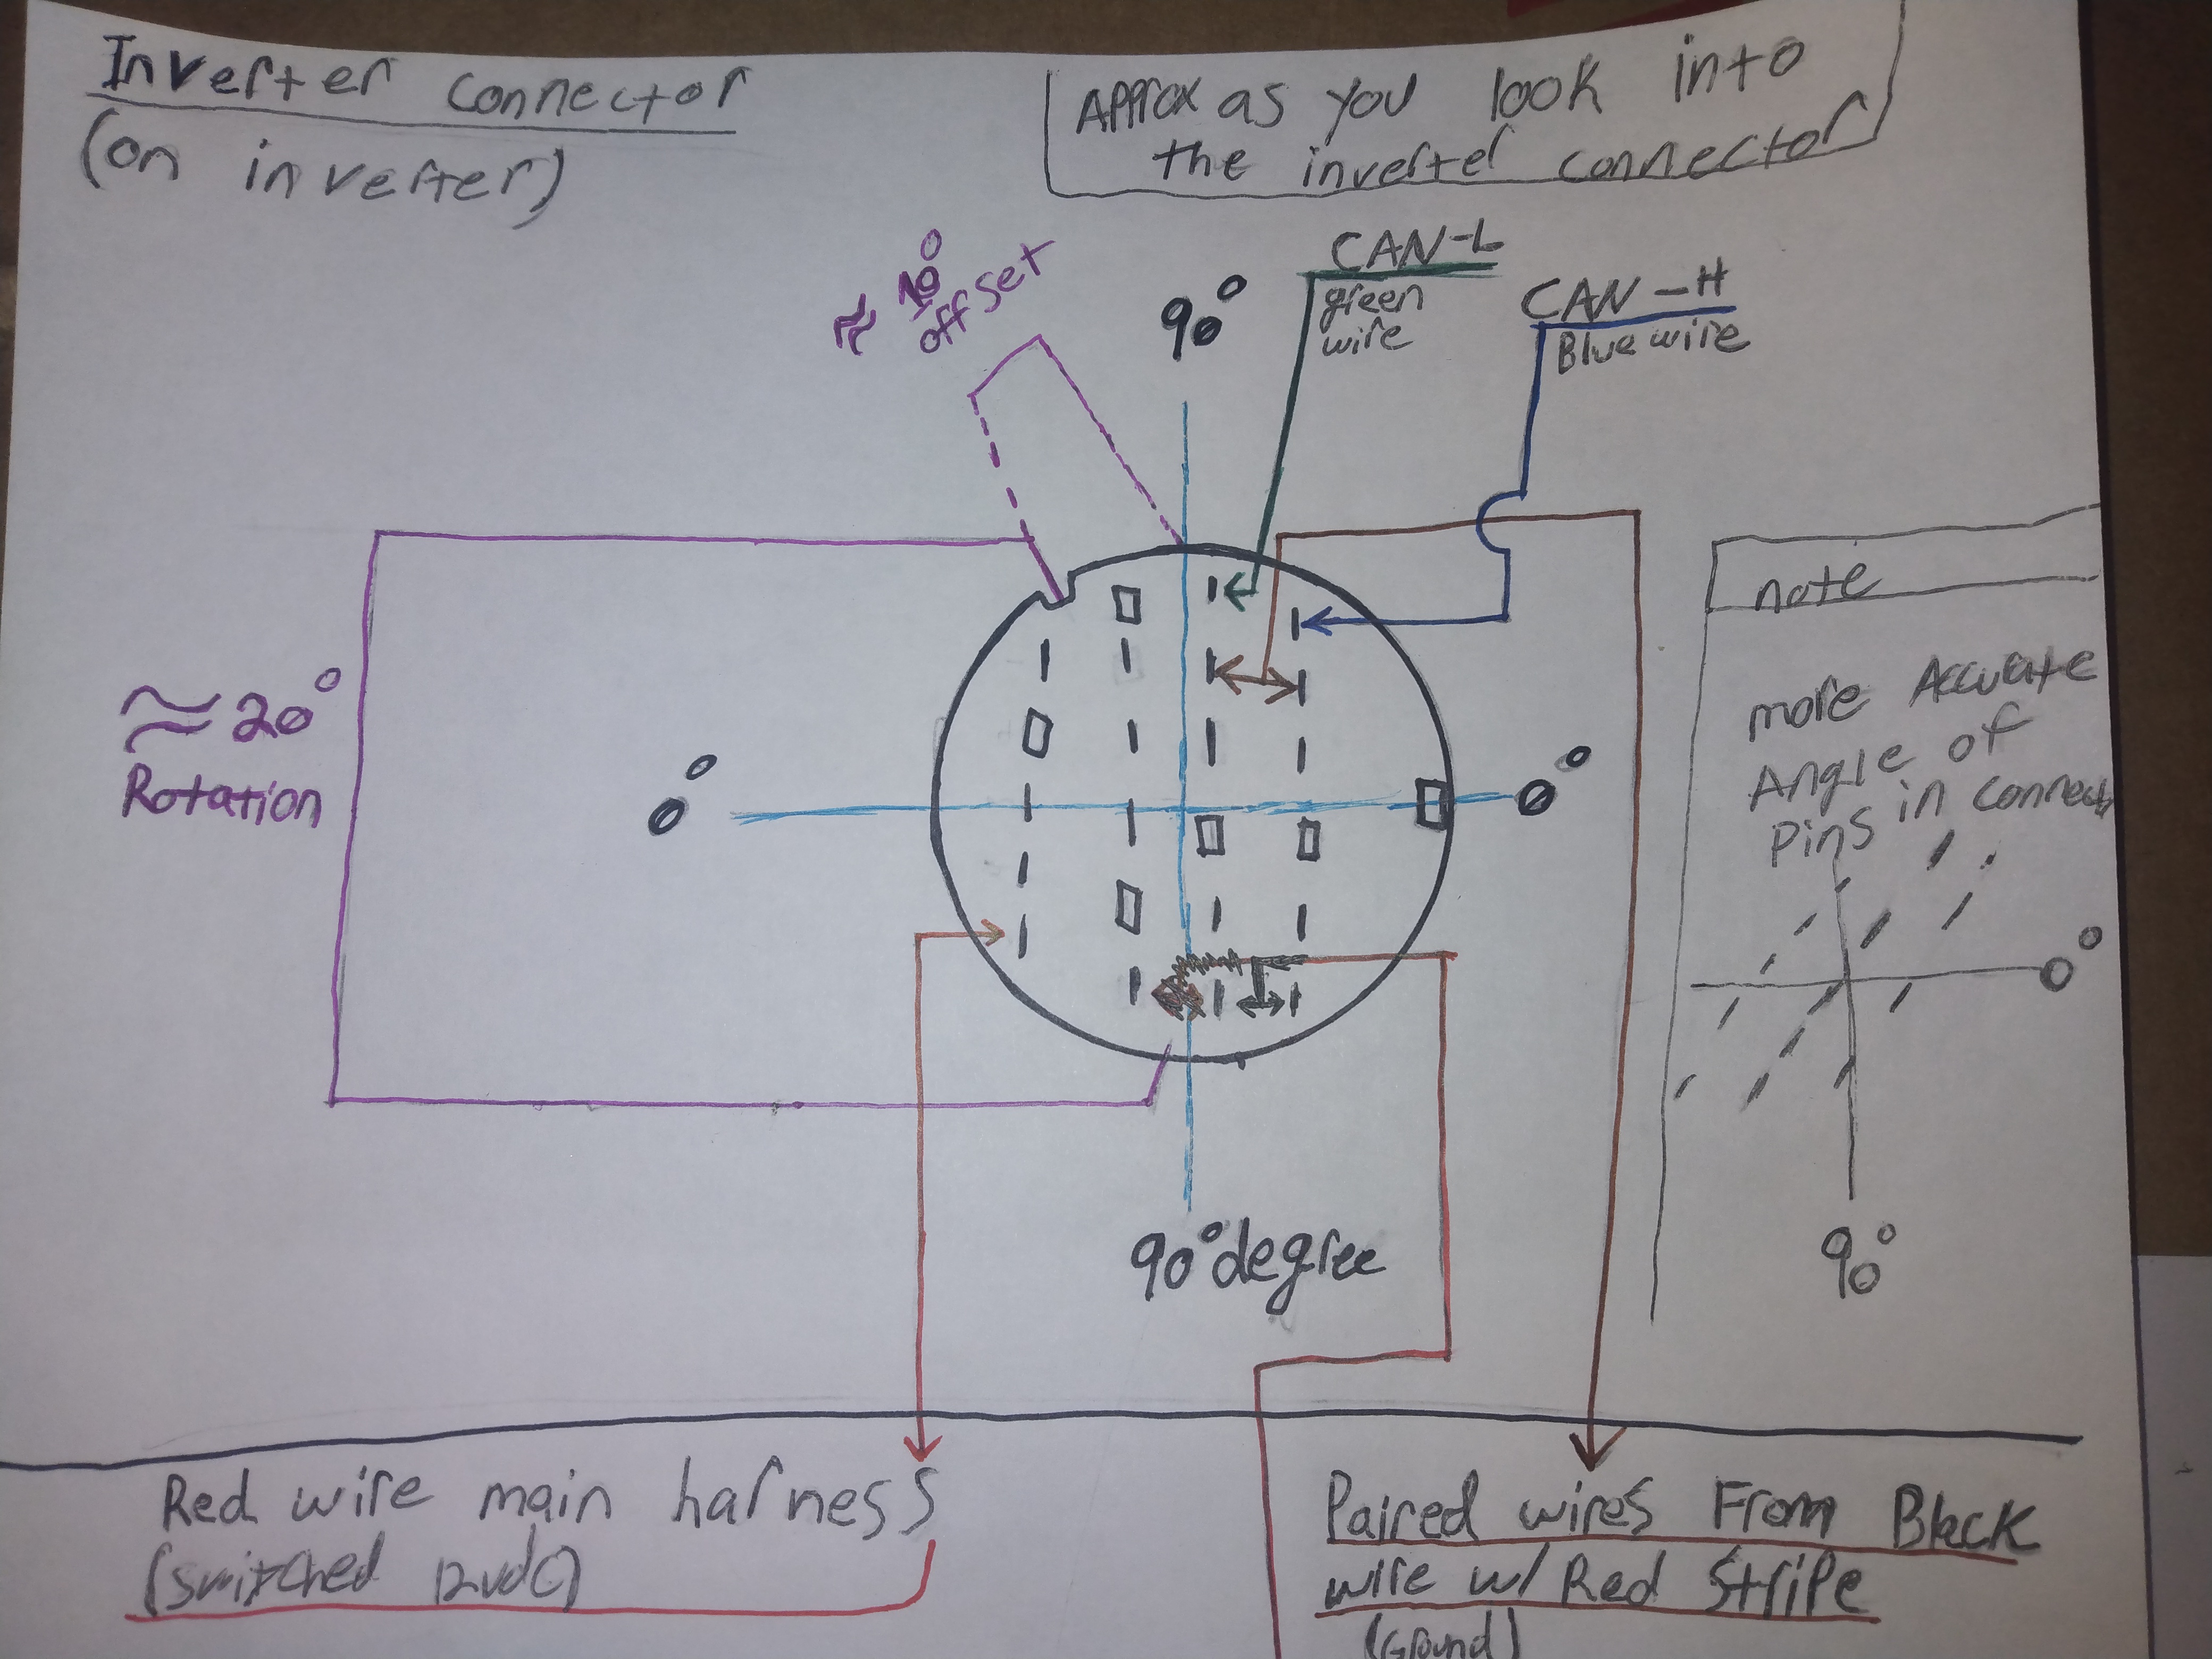 Inverter connector
(on inverter)
APProx as you look into
the inverter connector
≈ 10°
offset
90°
CAN-L
green
wire
CAN-H
Blue wire
≈ 20°
Rotation
0°
0°
note
more Accurate
Angle of
Pins in
0°
90°
90° degree
Red wire main harness
(switched 12vdc)
Paired wires From Black
wire w/ Red Stripe
(Ground)